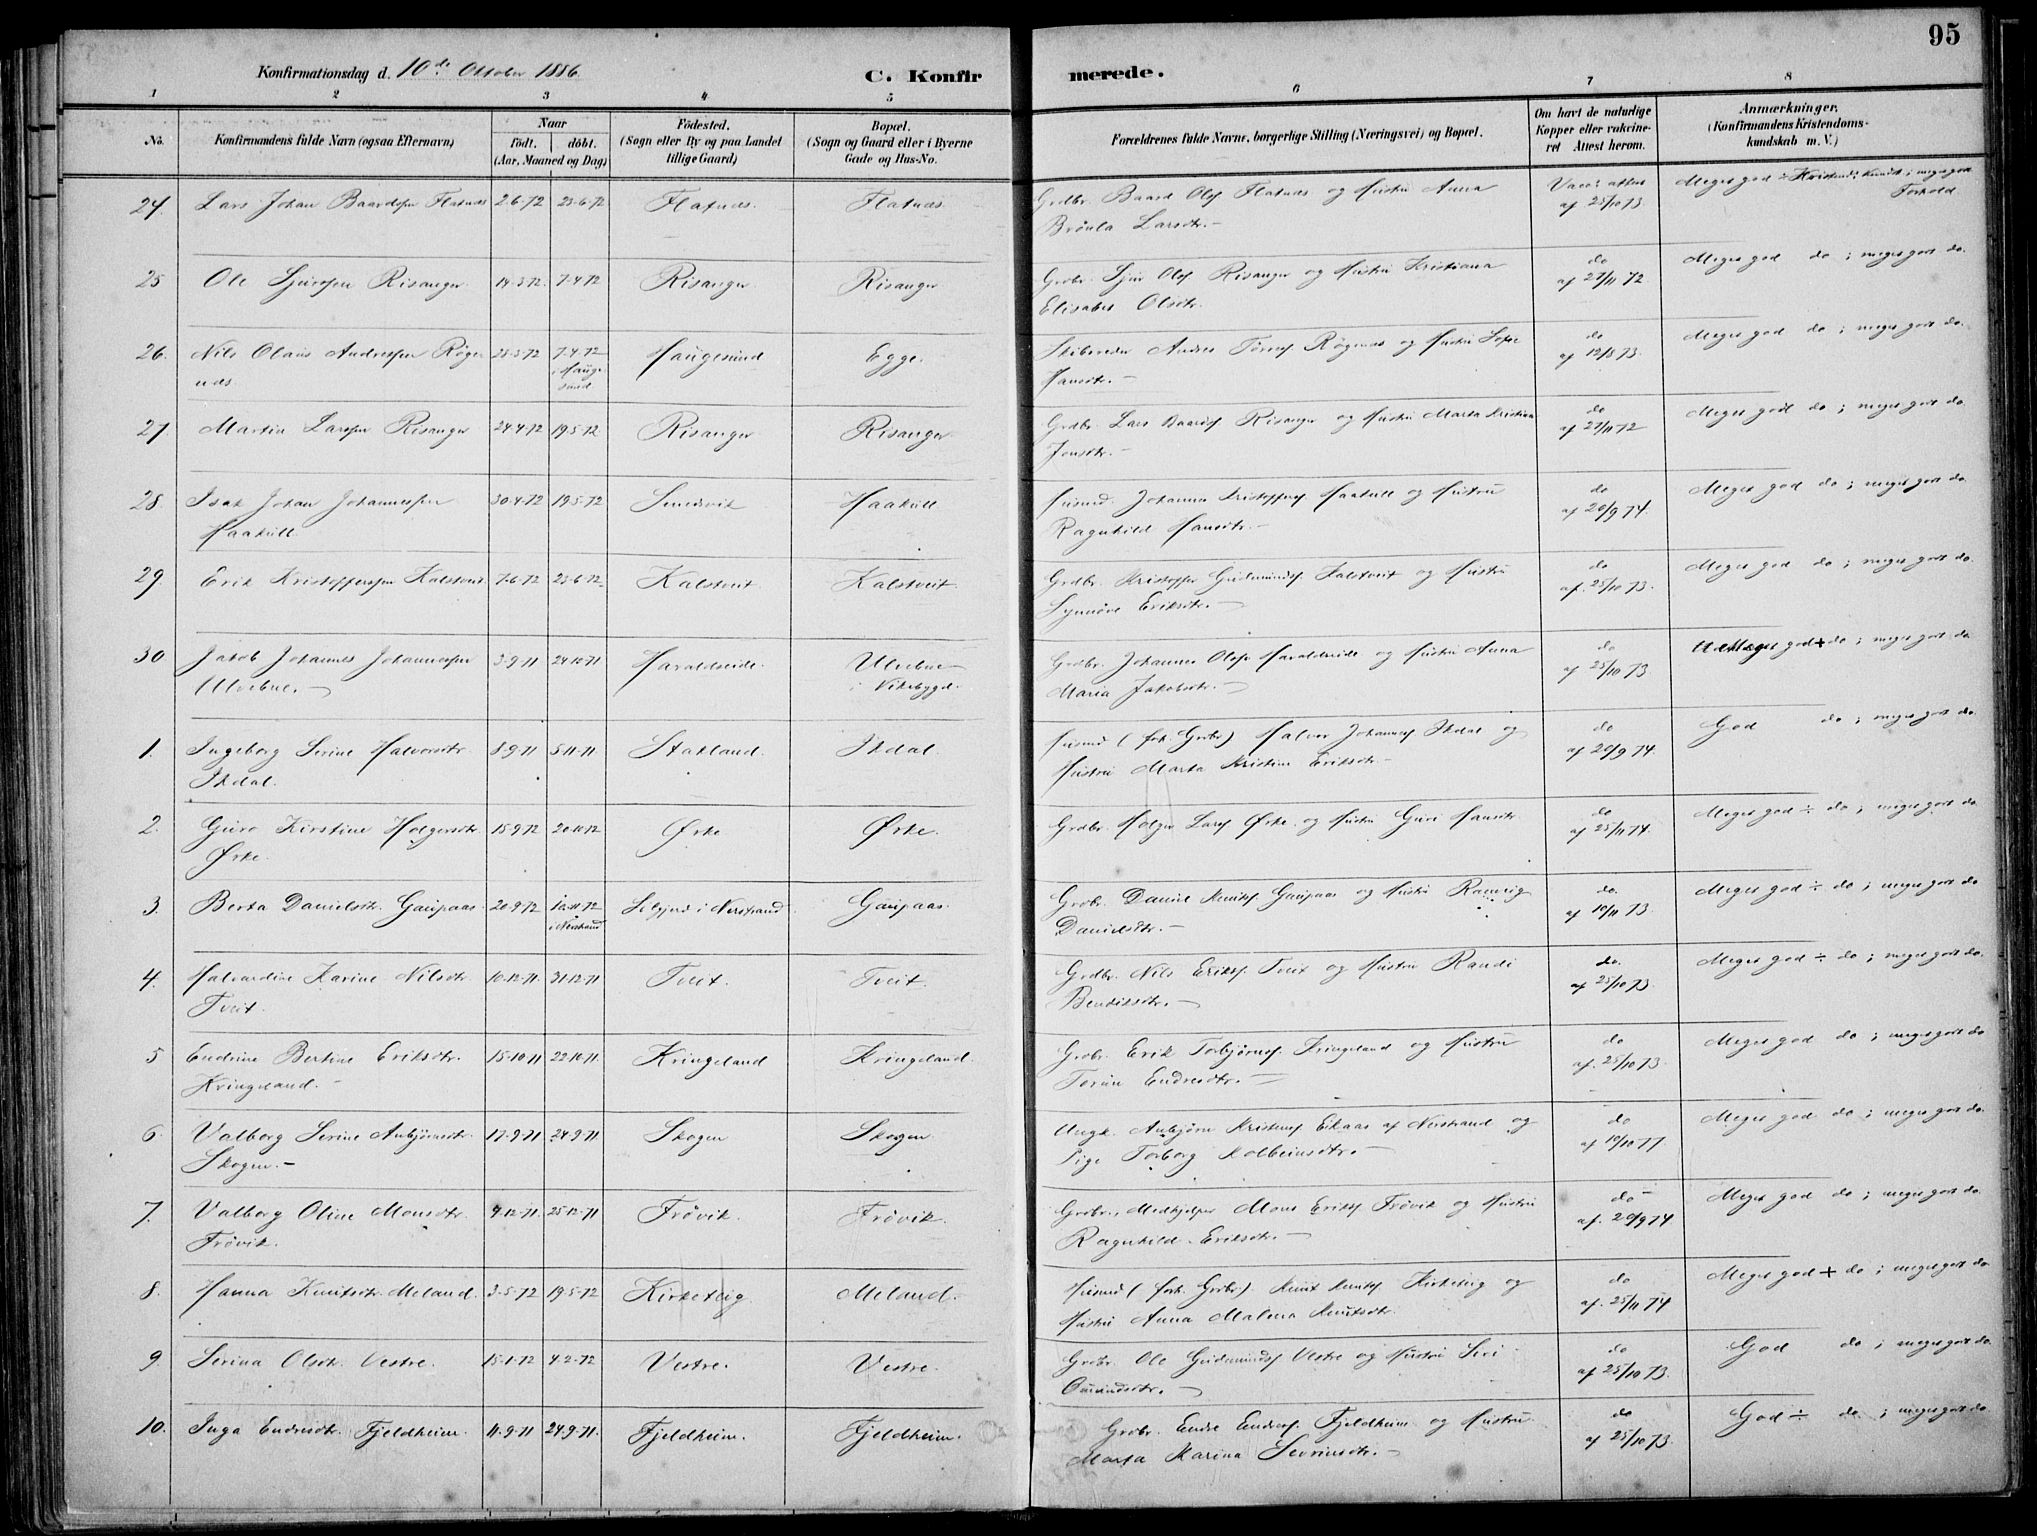 95
Konfirmationsdag d. 10de Oktober 1886.
C. Konfirmerede.
1 2 3 4 5 6 7 8
No. Konfirmandens fulde Navn (ogsaa Efternavn) Naar født. døbt. (Aar, Maaned og Dag) Fødested. (Sogn eller By og paa Landet tillige Gaard) Bopæl. (Sogn og Gaard eller i Byerne Gade og Hus-No. Forældrenes fulde Navne, borgerlige Stilling (Næringsvei) og Bopæl. Om havt de naturlige Kopper eller vakcineret Attest herom. Anmærkninger. (Konfirmandens Kristendomskundskab m. V.)
24. Lars Johan Baardsen Flatnæs 2-6-72 23-6-72 Flatnæs. Flatnæs. Grdbr. Baard Ols. Flatnæs og Hustru Anna Vacc: attest Meget god ÷ Kristend: kundsk; meget godt
Brönla Larsdtr. – af 25/10 73. Forhold.
25 Ole Sjursen Risanger 14-3-72. 7-4-72 Risanger Risanger Grdbr. Sjur Ols. Risanger og Hustru Kristiana do Meget god do ; meget godt do.
Elisabet Olsdtr. af 27/11 72.
26. Nils Olaus Andreassen Røge- 25-3-72 7-4-72 Haugesund Egge. Skibsreder Andreas Røgenæs og Hustru do Meget god do ; meget godt do.
næs. i Haugesund Hansdtr. – af 12/8 73.
27 Martin Larsen Risanger 24-4-72 19-5-72 Risanger Risanger Grdbr. Lars Baards. Risanger og Hustru Marta Kristina do Meget god do ; meget godt do.
Jonsdtr. – af 27/11 72
28 Isak Johan Johannessen 30-4-72 19-5-72 Smedsvik Haakull Husmd. Johannes Kristoffers. Haakull og Hustru do Meget god do ; meget godt do.
Haakull Ragnhild Hansdtr. – af 20/9 74.
29 Erik Kristoffersen Kalstveit 7-6-72 23-6-72 Kalstveit Kalstveit. Grdbr. Kristoffer Gudmunds. Kalstveit og Hustru do Meget god do ; meget godt do.
Synnöve Eriksdtr. – af. 25/10 73.
30 Jakob Johannes Johannessen 3-9-71 24-10-71 Haraldseide. Ulvebne Grdbr. Johannes Ols. Haraldseide og Hustru Anna do Meget god + do ; meget godt do
Ulvebne. – i Vikebygd. Maria Jakobsdtr. – af 25/10 73.
1. Ingeborg Serine Halvorsdtr. 8-9-71 5-11-71 Stakland. Ikdal. Husmd (forh. Grdbr) Halvor Johannes. Ikdal og do God do ; meget godt do.
Ikdal. Hustru Marta Kristine Eriksdtr. – af 20/9 74.
2. Guro Kirstine Holgersdtr. 15-9-72 20-10-72 Ørke Ørke. Grdbr. Holger Lars. Ørke. og Hustru Guri Hansdtr. do Meget god ÷ do ; meget godt do
Ørke. af 25/11 74.
3. Berta Danielsdtr. Gaupaas. 20-9-72 10-11-72 i Nerstrand Gaupaas. Grdbr. Daniel Knuts. Gaupaas og Hustru Ranveig do. Meget god ÷ do ; meget godt do
i Nerstrand Danielsdtr. – af 10/11 73.
4. Halvardine Karine Nilsdtr 10-12-71 31-12-71 Tveit. Tveit. Grdbr. Nils Eriks. Tveit og Hustru Randi do. Meget god ÷ do ; meget godt do.
Tveit. Bendiksdtr. – af 25/10 73.
5 Endrine Bertine Eriksdtr. 15-10-71 22-10-71. Kringeland Kringeland. Grdbr. Erik Torbjørns. Kringeland og Hustru do Meget god do ; meget godt do.
Kringeland. – Torun Endresdtr. – af. 25/10 73.
6. Valborg Serine Anbjørnsdtr. 17-9-71 24-9-71 Skogen Skogen Ungk. Anbjørn Kristens. Eikaas af Nerstrand og do Meget god do ; meget godt do.
Skogen. – Pige Torborg Kolbeinsdtr. – af 10/10 77.
7. Valborg Oline Monsdtr. 4-12-71. 25-12-71 Frövik. Frövik. Grdbr., Medhjelper Mons Eriks. Frövik og Hustru do – Meget god do ; meget godt do.
Frövik. Ragnhild Eriksdtr. – af. 20/9 74
8. Hanna Knutsdtr. Meland. 3-5-72 19-5-72 Kirketeig Meland. Husmd (forh. Grdbr) Knut Knuts. Kirketeig og do Meget god + do ; meget godt do.
Hustru Anna Malena Knutsdtr. af. 25/11 74
9. Serina Olsdtr. Vestre. 15-1-72 4-2-72 Vestre. Vestre. Grdbr. Ole Gudmunds. Vestre og Hustru Siri do God do ; meget godt do.
Omundsdtr. – af 25/10 73.
10. Inga Endresdtr. Fjeldheim. 11-9-71 24-9-71. Fjeldheim. Fjeldheim. Grdbr. Endre Endres. Fjeldheim og Hustru do God ÷ do ; meget godt do.
Marta Marina Sevrinsdtr. – af 25/10 73.